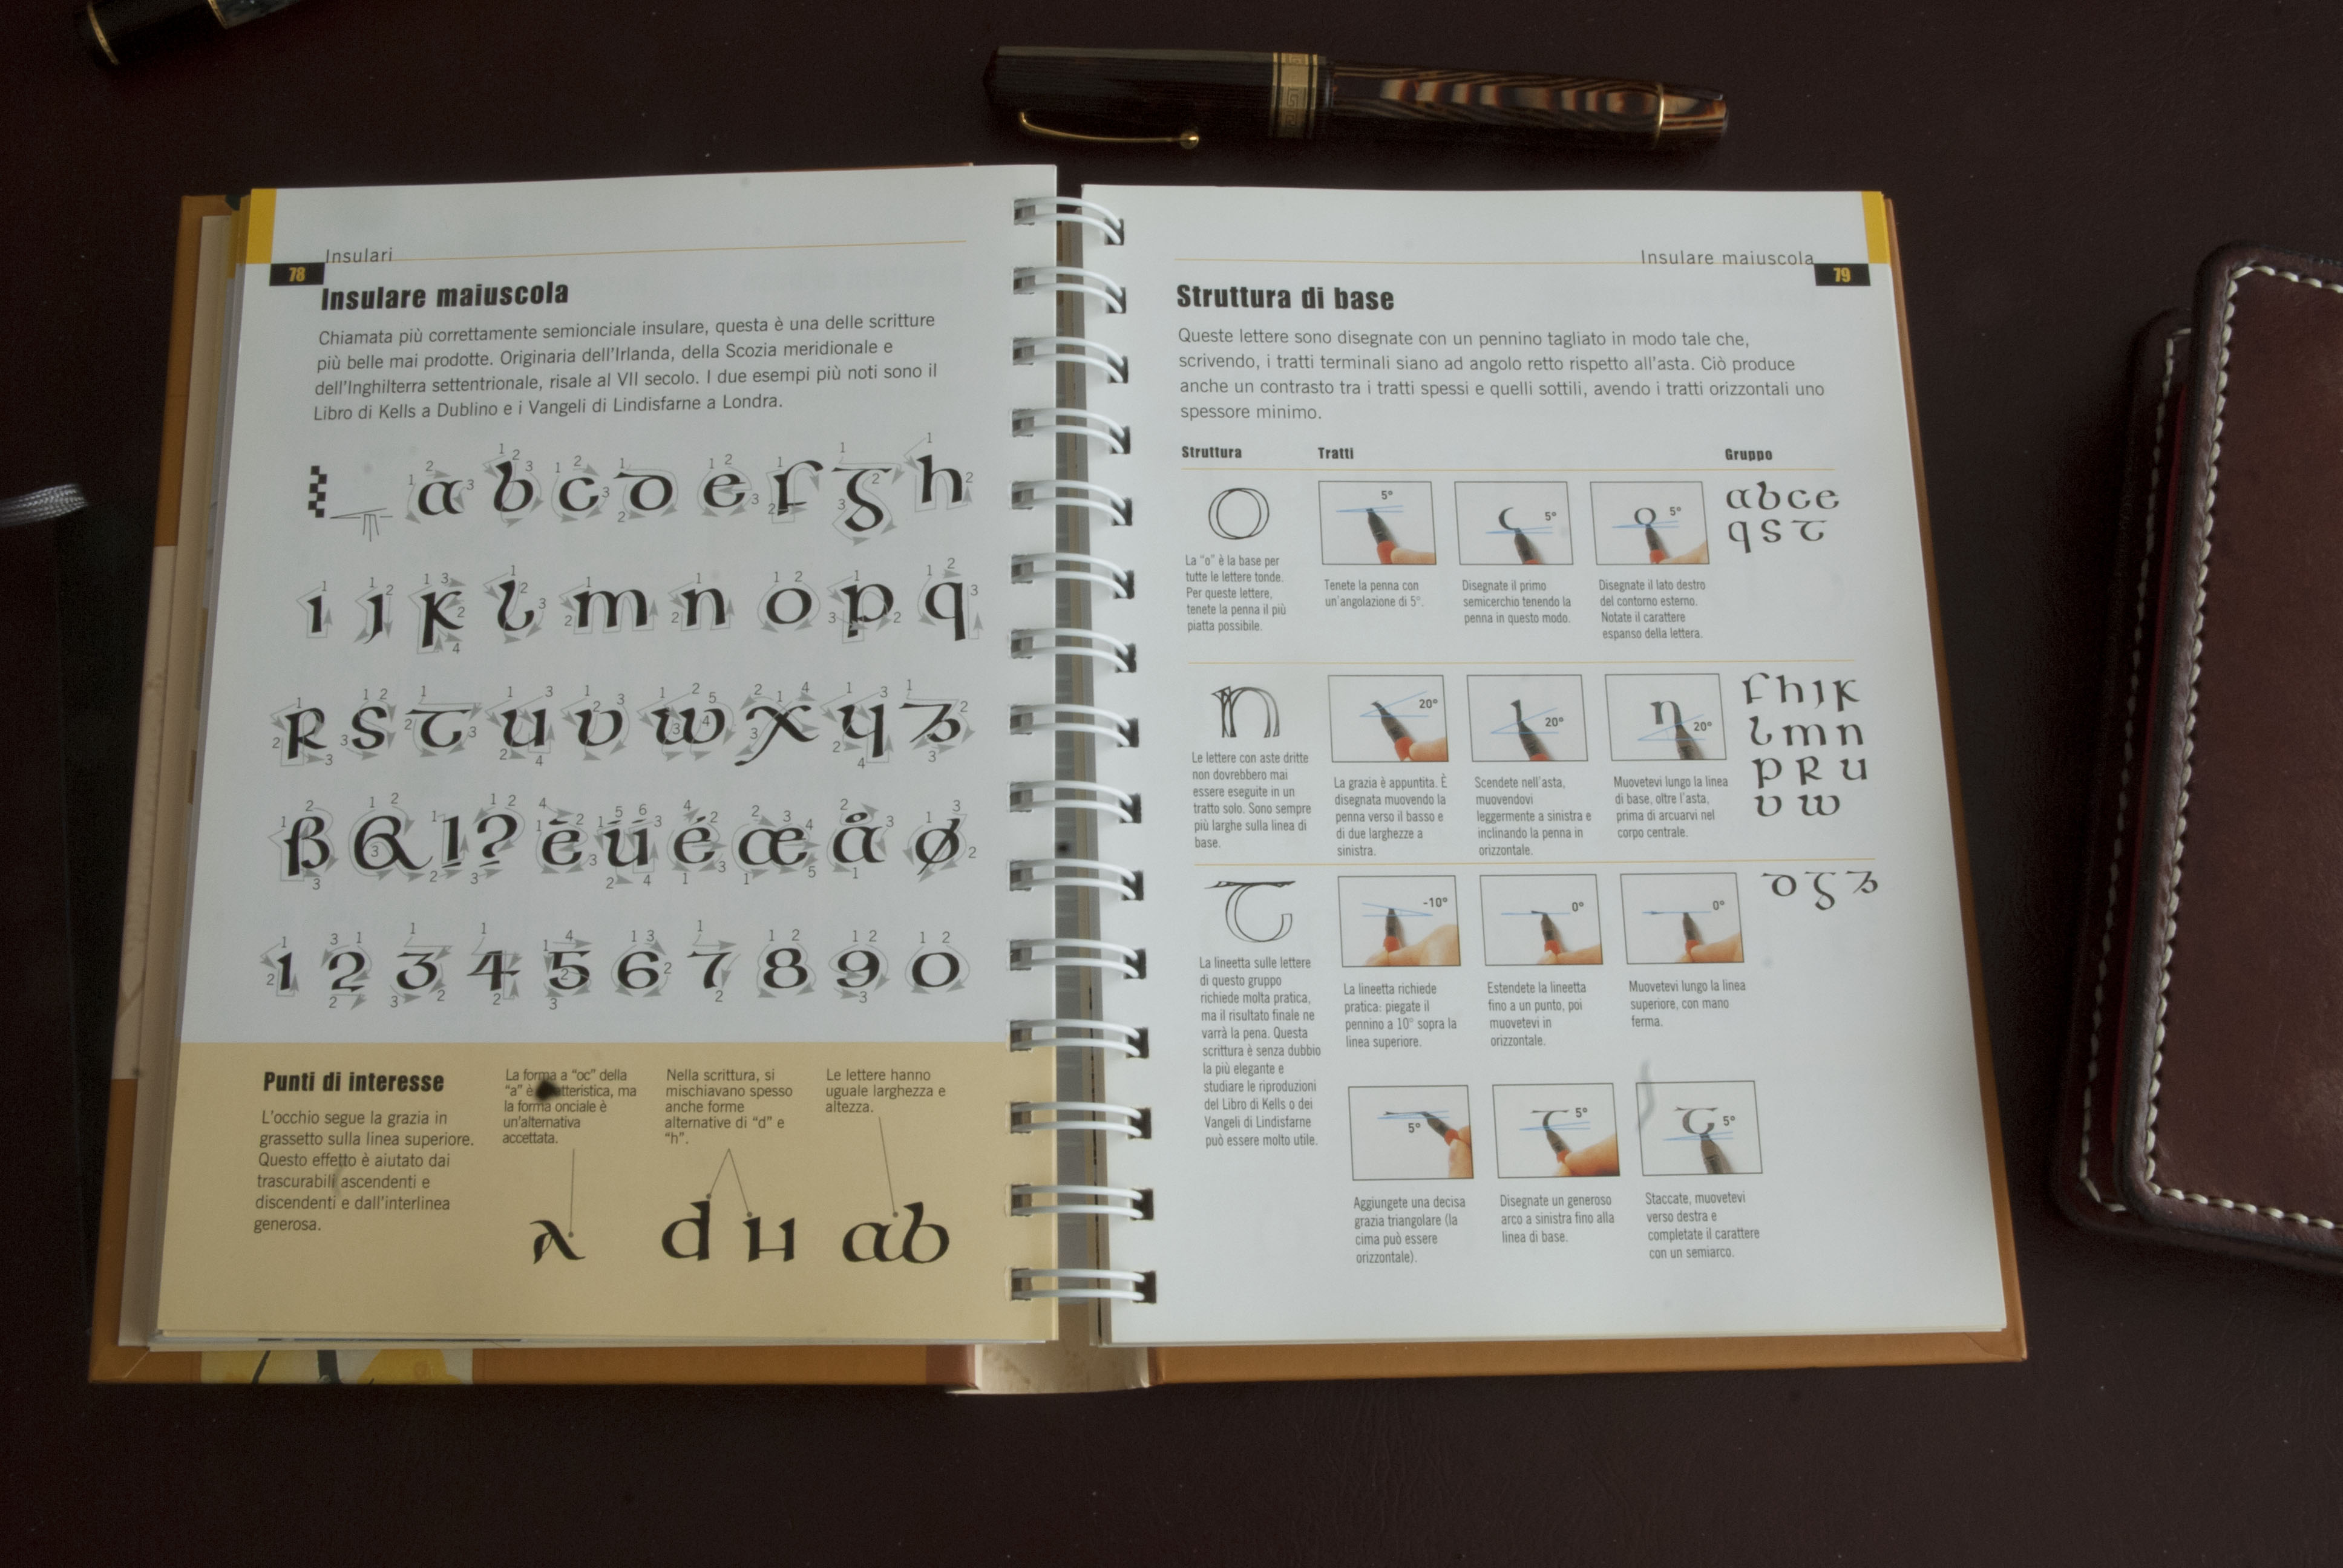 Insulari
78
Insulare maiuscola
Chiamata più correttamente semionciale insulare, questa è una delle scritture
più belle mai prodotte. Originaria dell'Irlanda, della Scozia meridionale e
dell'Inghilterra settentrionale, risale al VII secolo. I due esempi più noti sono il
Libro di Kells a Dublino e i Vangeli di Lindisfarne a Londra.
a b c d e f g h
i j k l m n o p q
r s t u v w x y z
ß & ! ? è ú é æ å ø
1 2 3 4 5 6 7 8 9 0
Punti di interesse
L'occhio segue la grazia in
grassetto sulla linea superiore.
Questo effetto è aiutato dai
trascurabili ascendenti e
discendenti e dall'interlinea
generosa.
La forma a “oc” della
“a” è ma
la forma onciale è
un'alternativa
accettata.
Nella scrittura, si
mischiavano spesso
anche forme
alternative di “d” e
“h”.
Le lettere hanno
uguale larghezza e
altezza.
a d h ab
Insulare maiuscola
79
Struttura di base
Queste lettere sono disegnate con un pennino tagliato in modo tale che,
scrivendo, i tratti terminali siano ad angolo retto rispetto all'asta. Ciò produce
anche un contrasto tra i tratti spessi e quelli sottili, avendo i tratti orizzontali uno
spessore minimo.
Struttura Tratti Gruppo
o
La “o” è la base per
tutte le lettere tonde.
Per queste lettere,
tenete la penna il più
piatta possibile.
5°
Tenete la penna con
un'angolazione di 5°.
5°
Disegnate il primo
semicerchio tenendo la
penna in questo modo.
5°
Disegnate il lato destro
del contorno esterno.
Notate il carattere
espanso della lettera.
abce
qst
n
Le lettere con aste dritte
non dovrebbero mai
essere eseguite in un
tratto solo. Sono sempre
più larghe sulla linea di
base.
20°
La grazia è appuntita. È
disegnata muovendo la
penna verso il basso e
di due larghezze a
sinistra.
20°
Scendete nell'asta,
muovendovi
leggermente a sinistra e
inclinando la penna in
orizzontale.
20°
Muovetevi lungo la linea
di base, oltre l'asta,
prima di arcuarvi nel
corpo centrale.
fhjk
lmn
pru
vw
t
La lineetta sulle lettere
di questo gruppo
richiede molta pratica,
ma il risultato finale ne
varrà la pena. Questa
scrittura è senza dubbio
la più elegante e
studiare le riproduzioni
del Libro di Kells o dei
Vangeli di Lindisfarne
può essere molto utile.
-10°
La lineetta richiede
pratica: piegate il
pennino a 10° sopra la
linea superiore.
0°
Estendete la lineetta
fino a un punto, poi
muovetevi in
orizzontale.
0°
Muovetevi lungo la linea
superiore, con mano
ferma.
dgz
5°
Aggiungete una decisa
grazia triangolare (la
cima può essere
orizzontale).
5°
Disegnate un generoso
arco a sinistra fino alla
linea di base.
5°
Staccate, muovetevi
verso destra e
completate il carattere
con un semiarco.